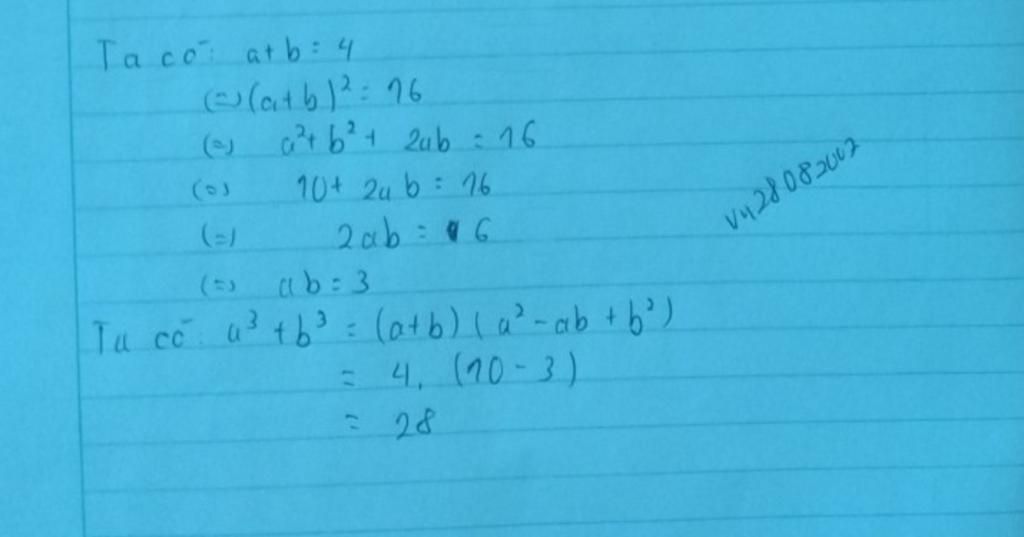 Ta có: a+b = 4
(=) (a+b)² = 16
(=) a²+b²+ 2ab = 16
(=) 10+ 2ab = 16
(=) 2ab = 6
(=) ab = 3
Ta có: a³ + b³ = (a+b) (a² - ab + b²)
= 4. (10 - 3)
= 28
vy28082007